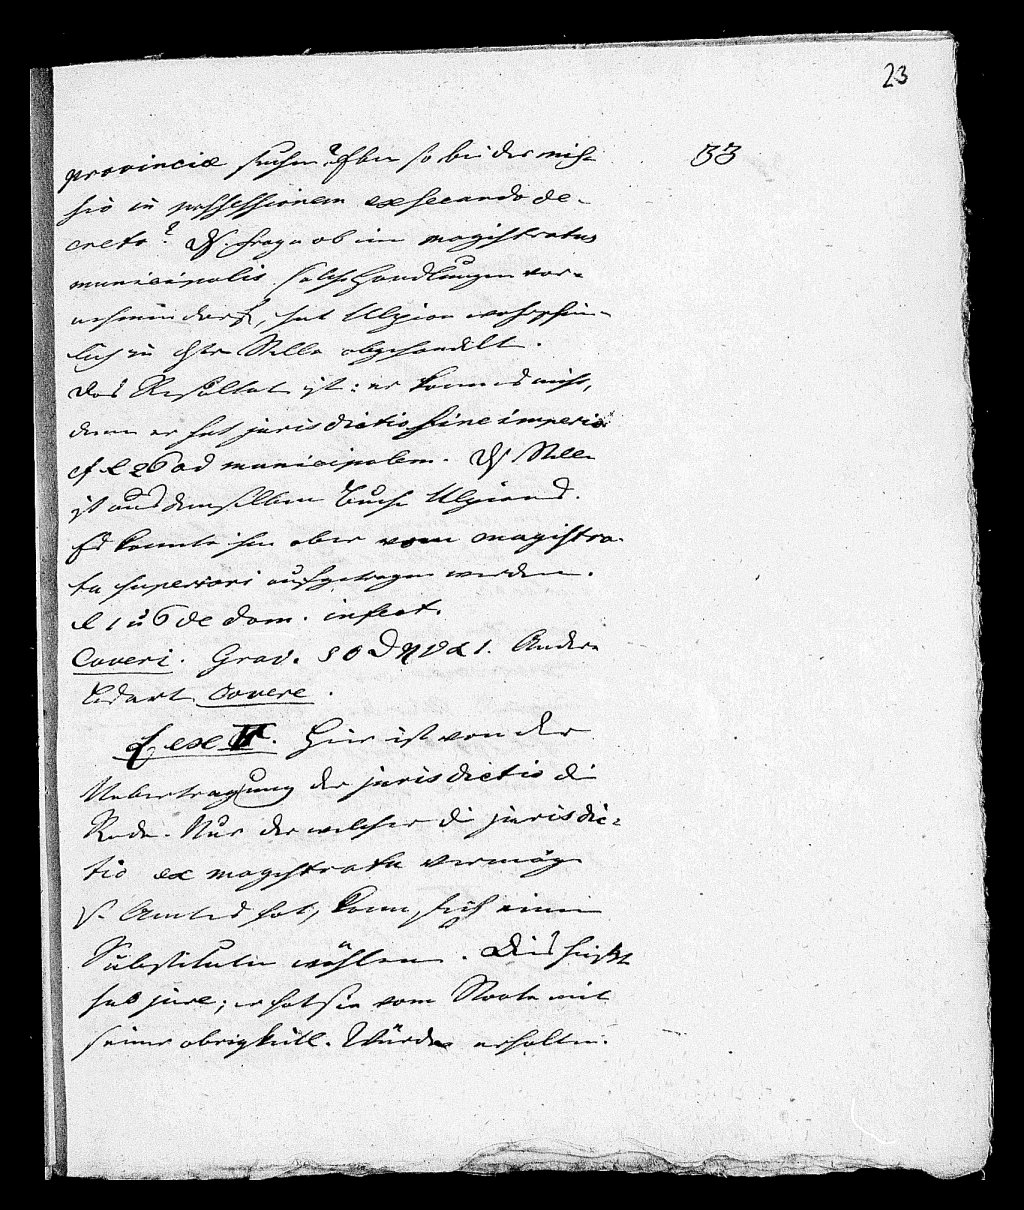 23
33
provinciae suchen? Eben so bei der mis-
sio in possessionem ex secundo de-
creto? D. Frage ob ein magistratus
municipalis solche Handlungen vor-
nehmen darf, hat Ulpian wahrschein-
lich in dsr Stelle abgehandelt.
Das Resultat ist: er konnte es nicht,
denn er hat jurisdictio sine imperio
cf l 26 ad municipalem. Ds Stelle
ist aus demselben Buche Ulpians.
Es konnte ihm aber vom magistra-
tu superiori aufgetragen werden.
l 1 u 6 de dom. infect.
Caveri. Grad. 1. Andere
Lesart cavere.
Lex II. Hier ist von der
Uebertragung der jurisdictio die
Rede. Nur der welcher die jurisdic-
tio ex magistratu vermöge
s. Amtes hat, kann sich einen
Substituten wählen. Dies heißt
suo jure; er hat sie vom Staate mit
seiner obrigkeitl. Würde erhalten.